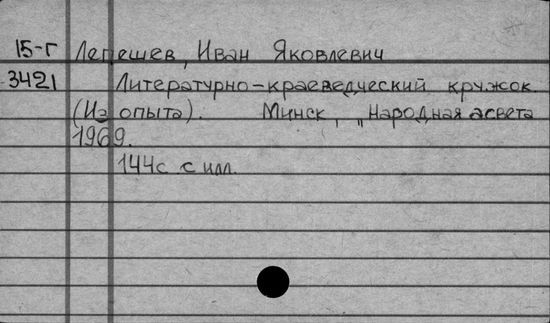 15-г Лепешев, Иван Яковлевич
3421 Литературно-краеведческий кружок.
(Из опыта). Минск, „Народная асвета
1969.
144с с илл.